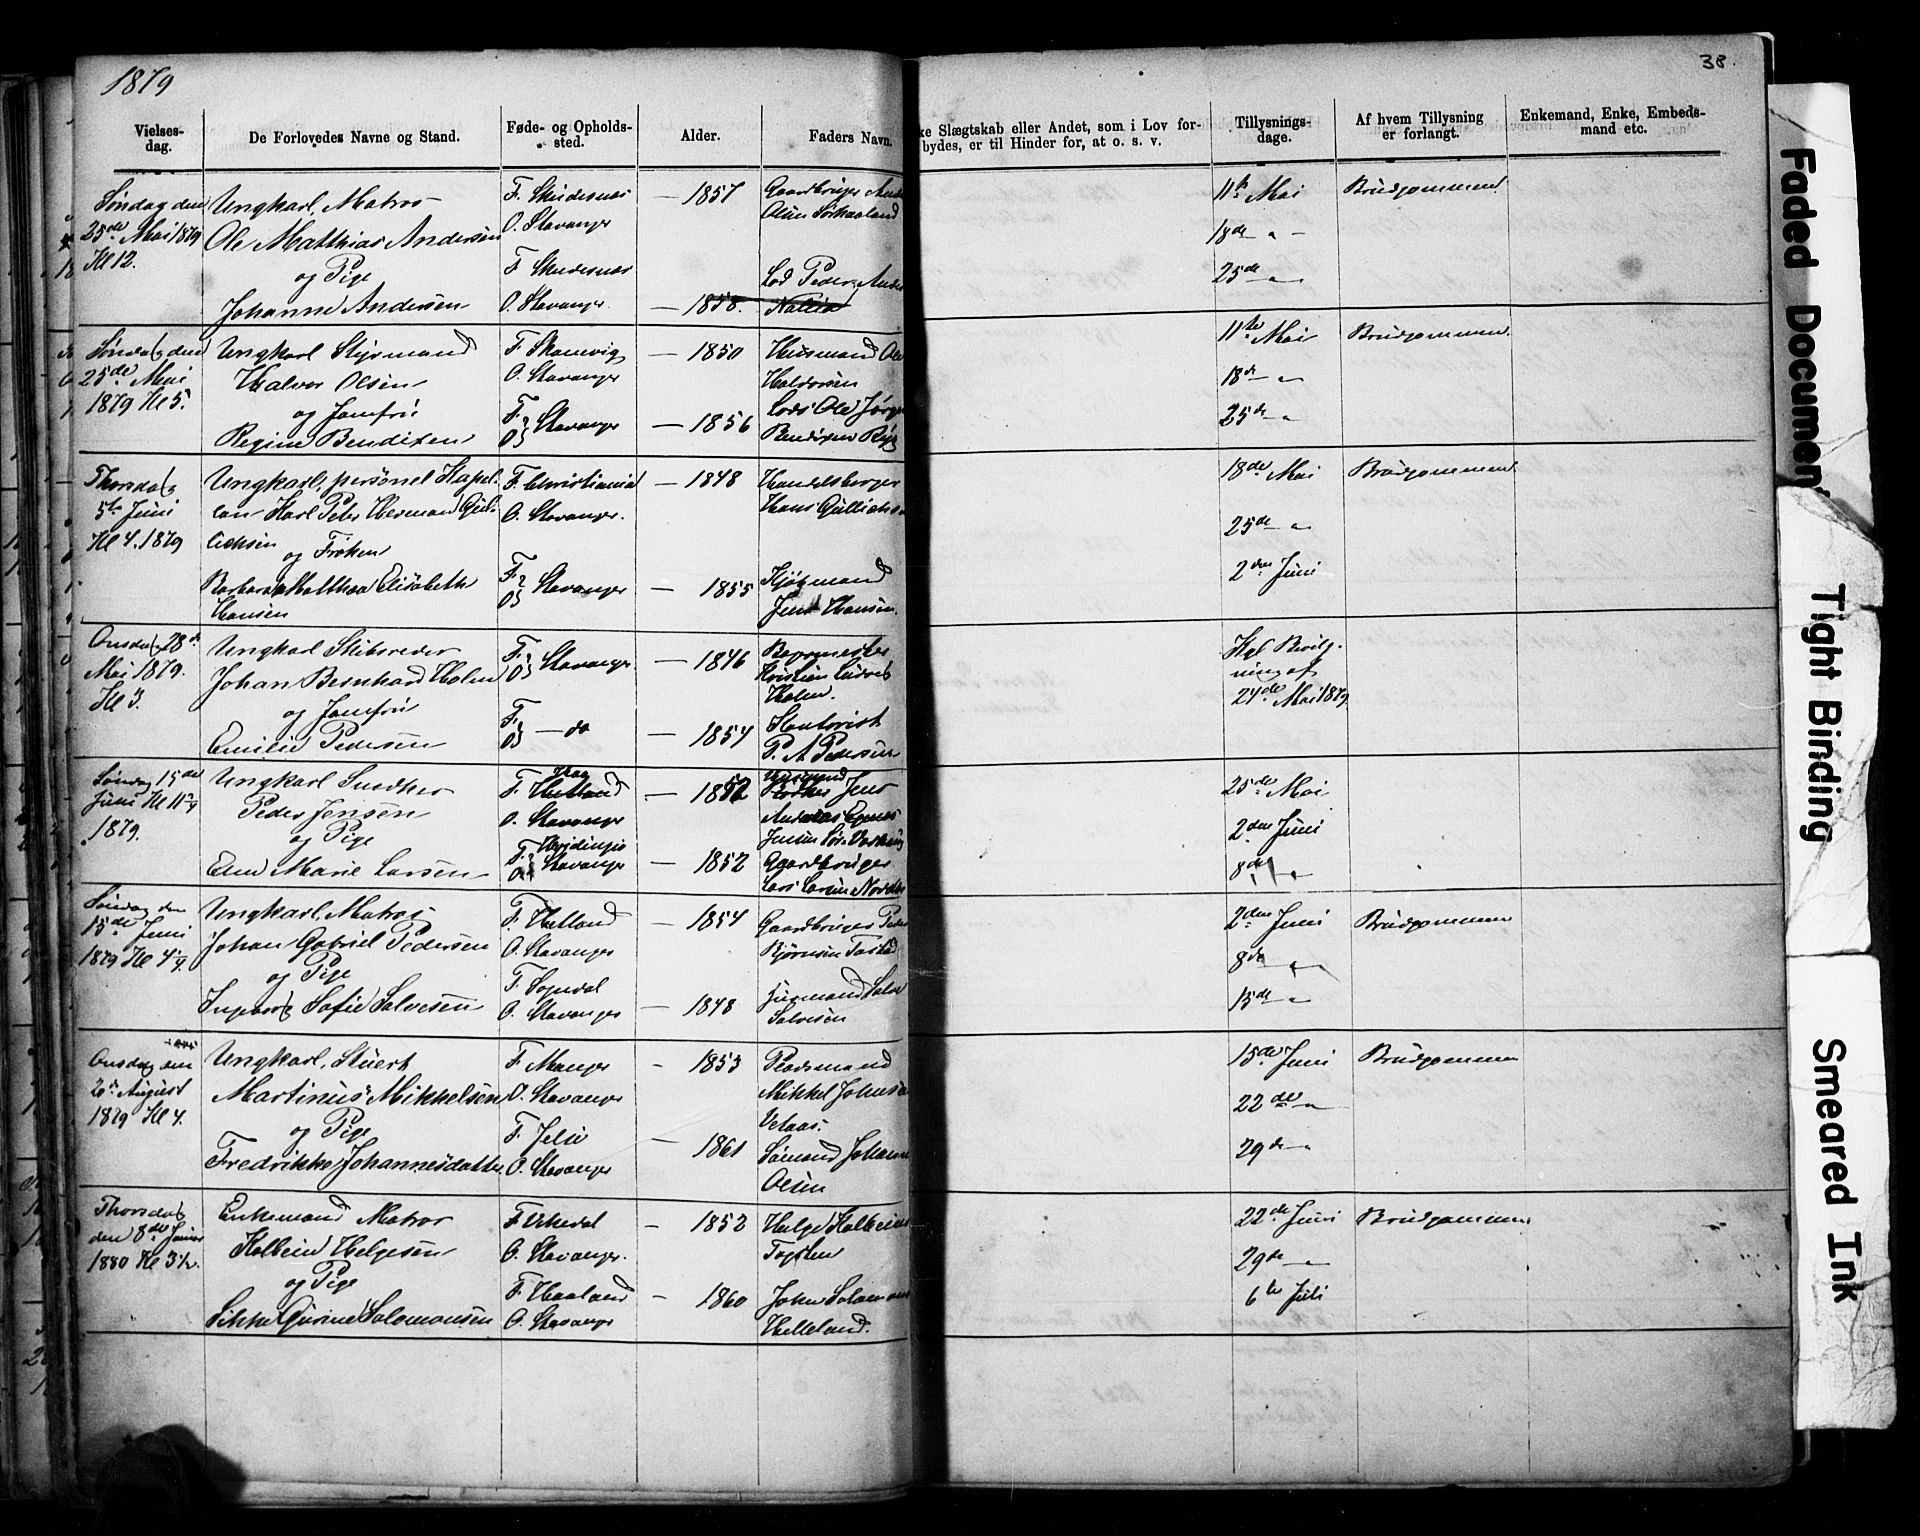 1879
38.
Vielses-
dag.
De Forlovedes Navne og Stand.
Føde- og Opholds-
sted.
Alder.
Faders Navn.
ke Slægtskab eller Andet, som i Lov for-
bydes, er til Hinder for, at o. s. v.
Tillysnings-
dage.
Af hvem Tillysning
er forlangt.
Enkemand, Enke, Embeds-
mand etc.
Søndag den
25de Mai 1879
Kl 12.
Ungkarl, Matros
Ole Matthias Andersen
og Pige
Johanne Andersen
F. Skudesnæs
O. Stavanger
F. Skudesnæs
O. Stavanger
— 1857
— 1858.
Gaardbruger
Olsen
Lods Peder
11te Mai
18de "
25de "
Brudgommen
Søndag den
25de Mai
1879 Kl 5.
Ungkarl Styrmand
Halvor Olsen
og Jomfru
Regine Bendixen
F. Skanevig
O. Stavanger
F. O. Stavanger
— 1850
— 1856
Husmand Ole
Haldorsen
Lods Ole Jørg
Bendixen
11te Mai
18de "
25de "
Brudgommen.
Thorsdag
5te Juni
Kl 4. 1879
Ungkarl, personel Kapel-
lan Karl Peter Herman Gul-
lichsen
og Frøken
Barbara Matthea Elisabeth
Hansen
F. Christiania
O. Stavanger.
F. O. Stavanger
— 1848
— 1855
Handelsborger
Hans Gullichsen
Kjøbmand
Jens Hansen.
18de Mai
25de "
2den Juni
Brudgommen
Onsdag 28de
Mai 1879.
Kl 3.
Ungkarl Skibsreder
Johan Bernhard Holm
og Jomfru
Emilie Pedersen
F. O. Stavanger.
F. O. — do
— 1846
— 1854
Kristian Ludvig
Holm.
Kontorist
P. A Pedersen
Kgl Bevilg-
ning af
24de Mai 1879.
Søndag 15de
Juni Kl 11¾
1879.
Ungkarl Snedker
Peder Jensen
og Pige
Marie Larsen
F. Hetland
O. Stavanger
F.
O. Stavanger
— 1852
— 1852
Jens
Gaardbruger
25de Mai
2den Juni
8de "
Søndag den
15de Juni
1879 Kl 4¼.
Ungkarl, Matros
Johan Gabriel Pedersen
og Pige
Ingeborg Sofie Salvesen
F. Hetland
O. Stavanger
F. Sogndal
O. Stavanger
— 1854
— 1848
Gaardbruger Peder
Bjørnsen Tasta
Salve
Salvesen
2den Juni
8de "
15de "
Brudgommen
Onsdag den
20de August
1879 Kl 4.
Ungkarl, Stuert
Martinus Mikkelsen
og Pige
Fredrikke Johannesdatter
F. Manger
O. Stavanger
F. Jelse
O. Stavanger
— 1853
— 1861
Mikkel Johnsen
Sømand Johann
Olsen
15de Juni
22de "
29de "
Brudgommen
Thorsdag
den 8de Januar
1880 Kl 3½.
Enkemand Matros
Kolbein Helgesen
og Pige
Sikke Gurine Salomonsen
F.
O. Stavanger.
F. Haaland
O. Stavanger
— 1852
— 1860
Helge Kolbeins
John Salomons
Helleland.
22de Juni
29de "
6te Juli
Brudgommen
Faded Document
Tight Binding
Smeared Ink